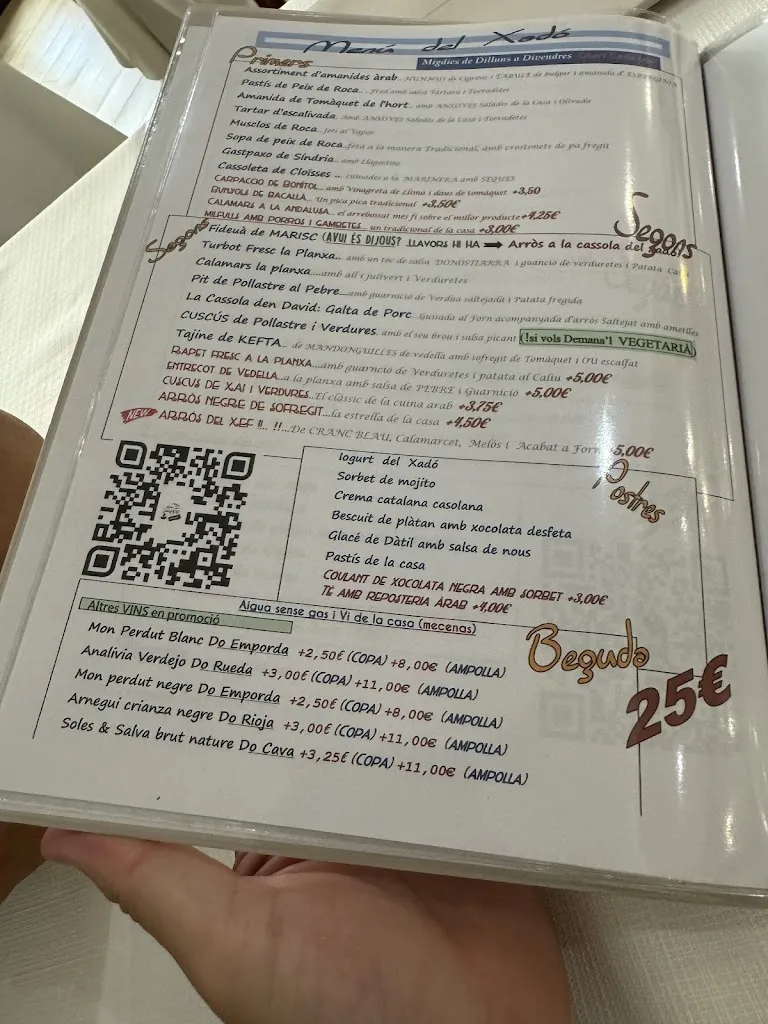 Menú del Xadó
Migdies de Dilluns a Divendres
Primers
Assortiment d'amanides àrab.. HUMMUS de Cigrons i TABULE de Bulgur i amanida d'
Pastís de Peix de Roca... Fred amb salsa Tàrtara i Torradetes
Amanida de Tomàquet de l'hort.. amb ANXOVES Salades de la Casa i Olivada
Tartar d'escalivada. Amb ANXOVES Salades de la Casa i Torradetes
Musclos de Roca.. fets al Vapor
Sopa de peix de Roca..feta a la manera Tradicional, amb crostonets de pa fregit
Gastpaxo de Síndria... amb Llagostins
Cassoleta de Cloïsses .. cuinades a la MARINERA amb SEQUES
CARPACCIO DE BONÍTOL... amb Vinagreta de Llima i daus de tomàquet +3,50
BUNYOLS DE BACALLÀ... Un pica pica tradicional +3,50€
CALAMARS A LA ANDALUSA.. el arrebossat mes fi sobre el millor producte+4,25€
MILFULLS AMB PORROS I GAMBETES... un tradicional de la casa +3,00€
Segons
Segons
Fideuà de MARISC (AVUI ÉS DIJOUS? LLAVORS HI HA ➡ Arròs a la cassola del Xadó)
Turbot Fresc la Planxa... amb un toc de salsa DONOSTIARRA i guarnció de verduretes i Patata Caliu
Calamars la planxa....amb all i julivert i Verduretes
Pit de Pollastre al Pebre....amb guarnició de Verdua saltejada i Patata fregida
La Cassola den David: Galta de Porc...Guisada al forn acompanyada d'arròs Saltejat amb ametlles
CUSCÚS de Pollastre i Verdures. amb el seu brou i salsa picant (!si vols Demana'l VEGETARIÀ)
Tajine de KEFTA.. de MANDONGUILLES de vedella amb sofregit de Tomàquet i OU escalfat
RAPET FRESC A LA PLANXA...amb guarnció de Verduretes i patata al Caliu +5,00€
ENTRECOT DE VEDELLA...a la planxa amb salsa de PEBRE i Guarnició +5,00€
CUSCUS DE XAI I VERDURES..El clàssic de la cuina arab +3,75€
ARRÒS NEGRE DE SOFREGIT...la estrella de la casa +4,50€
NEW ARRÒS DEL XEF !!.. !!...De CRANC BLAU, Calamarcet, Melòs i Acabat a Forn +5,00€
Postres
Iogurt del Xadó
Sorbet de mojito
Crema catalana casolana
Bescuit de plàtan amb xocolata desfeta
Glacé de Dàtil amb salsa de nous
Pastís de la casa
COULANT DE XOCOLATA NEGRA AMB SORBET +3,00€
TÉ AMB REPOSTERIA ÀRAB +4,00€
Aigua sense gas i Vi de la casa (mecenas)
Beguda
Altres VINS en promoció
Mon Perdut Blanc Do Emporda +2,50€ (COPA) +8,00€ (AMPOLLA)
Analivia Verdejo Do Rueda +3,00€ (COPA) +11,00€ (AMPOLLA)
Mon perdut negre Do Emporda +2,50€ (COPA) +8,00€ (AMPOLLA)
Arnegui crianza negre Do Rioja +3,00€ (COPA) +11,00€ (AMPOLLA)
Soles & Salva brut nature Do Cava +3,25€ (COPA) +11,00€ (AMPOLLA)
25€